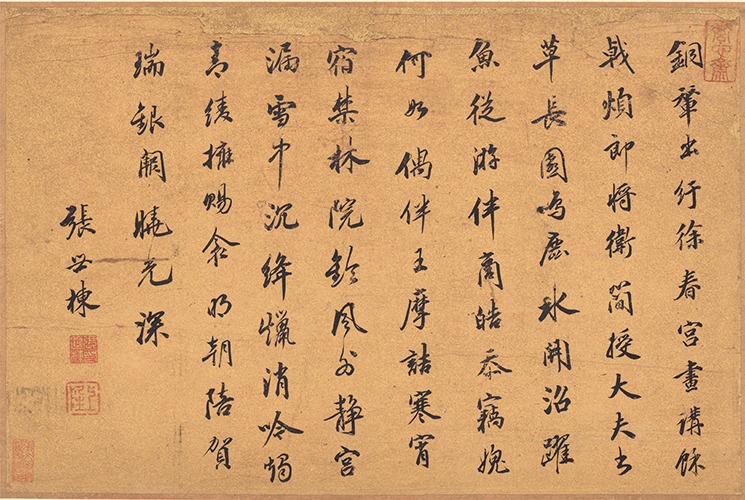 銅輦出行徐春宮晝講餘
戟煩郎將衛簡授大夫書
草長園鳴鹿冰開沼躍
魚從游伴商皓忝竊媿
何如偶伴王摩詰寒宵
宿禁林院鈴風外靜宮
漏雪中沉絳爉消吟燭
青綾擁賜衾明朝陪賀
瑞銀闕曉光深
張世棟